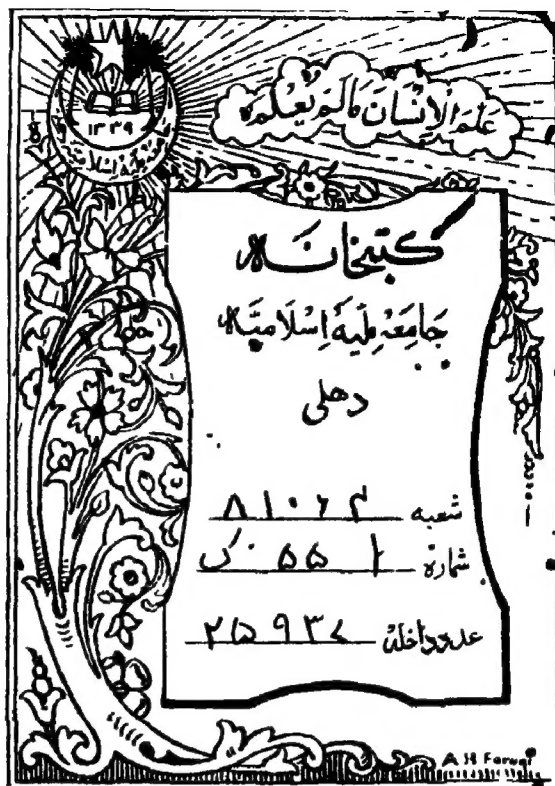 عَلَّمَ الْاِنْسَانَ مَا لَمْ يَعْلَمْ
۱۳۳۹
کتبخانہ
جَامِعَہ مِلّیَہ اِسْلَامِیَّہ
دهلی
شعبہ ۸۱۰۶۲
شمارہ ۵۵۱
عدد داخلہ ۲۵۹۳۷
A H Faruqi